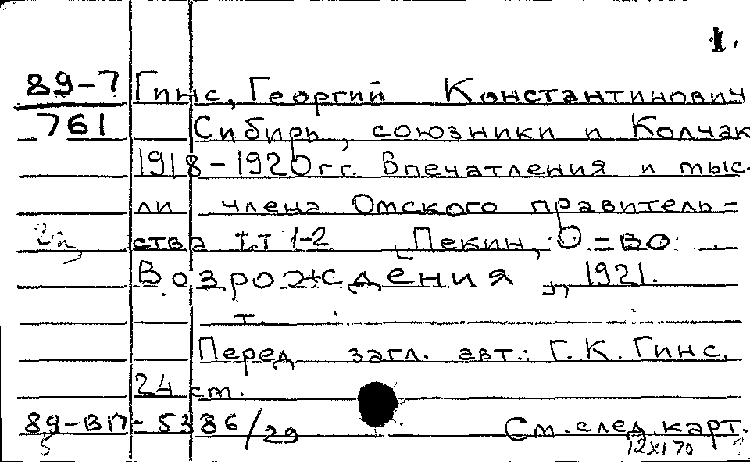 1.
89-7 Гинс, Георгий Константинович
761 Сибирь, союзники и Колчак
1918-1920гг. Впечатления и мыс-
ли члена Омского правитель=
ства т.т 1-2 Пекин, О=во
"Возрождения", 1921.
Перед загл. авт.: Г.К. Гинс.
24 см.
89-ВП-5386/29 См. след. карт.
12 XI 70